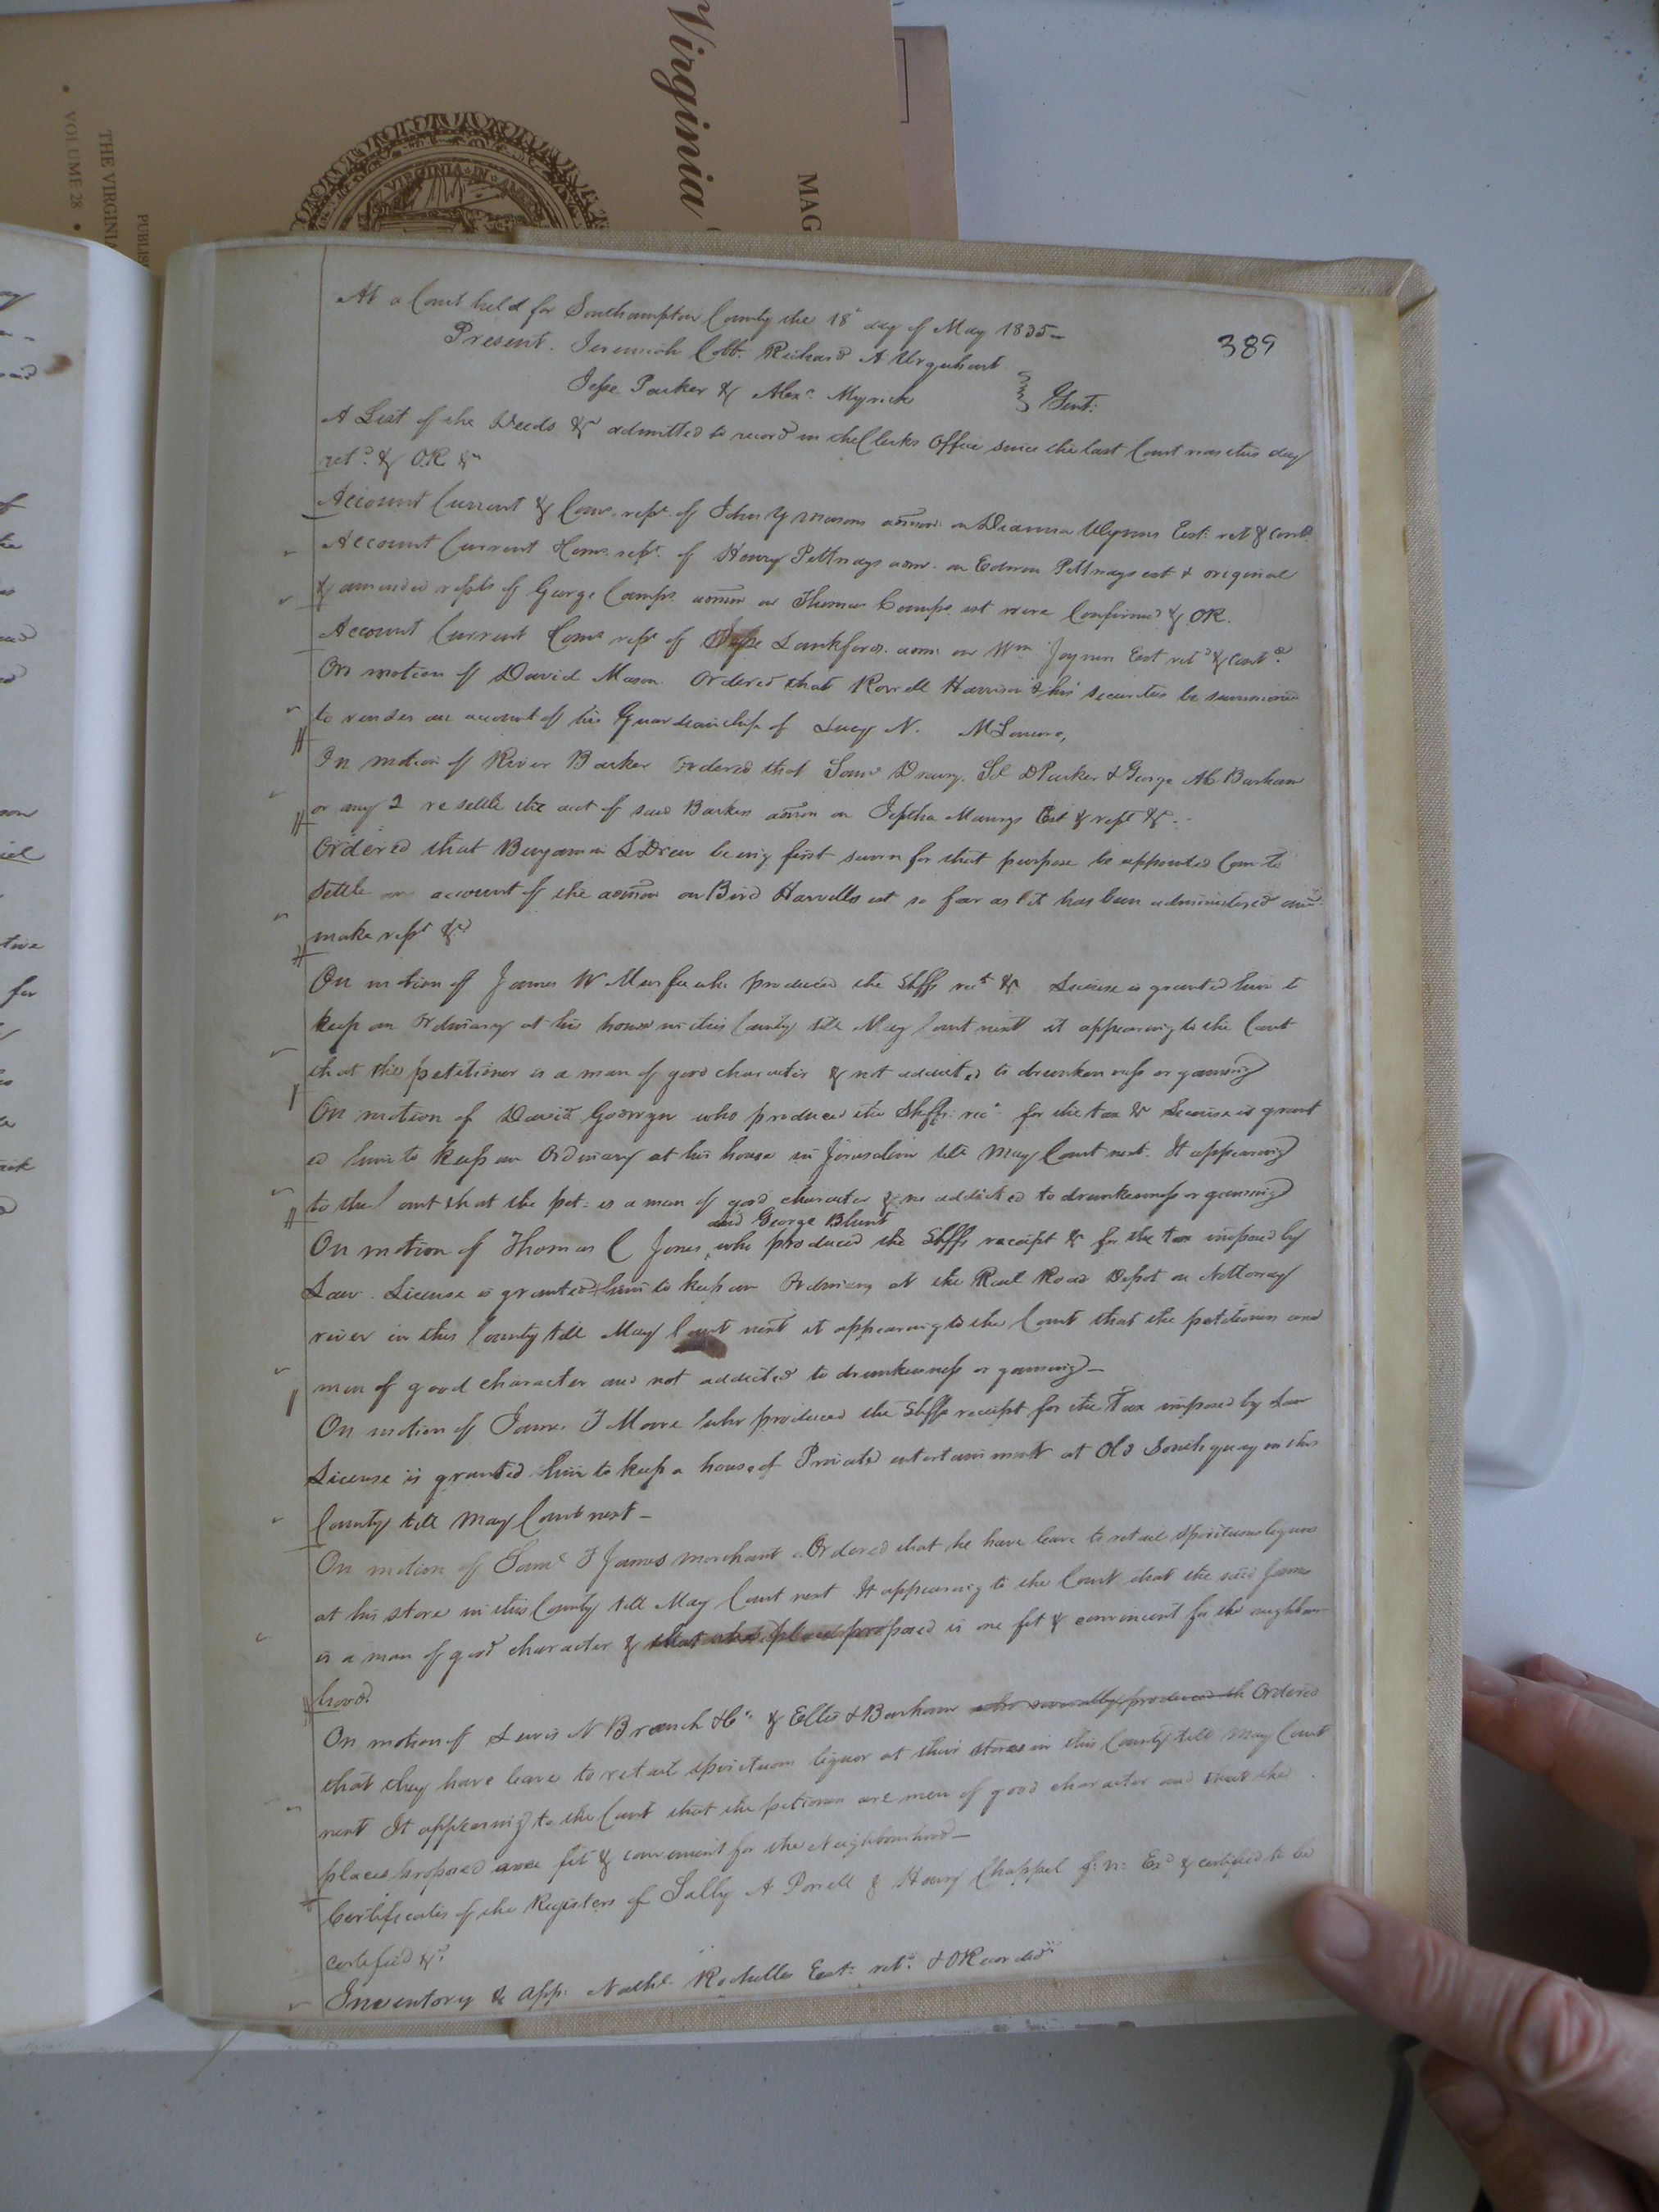 Virginia
MAG
THE VIRGINIA
VOLUME 28
PUBLIS
VIRGINIA IN
389
At a Court held for Southampton County the 18th day of May 1835—
Present. Jeremiah Cobb. Richard A Urquhart
Jesse Parker & Alexr. Myrick } Gent:
A List of the Deeds &c admitted to record in the Clerks Office since the last Court was this day
retd. & OR &c
Account Current & Coms. rept. of John Y Masons admon on Dianna Wynns Est: ret & Contd.
Account Current Coms. rept. of Henry Pettways adm. on Edwin Pettways est & original
& amended repts of George Camps. admon on Thomas Camps. est were Confirmed & OR.
Account Current Coms rept of Jesse Lankford. adm. on Wm Joyners Est retd & Contd.
On motion of David Mason. Ordered that Howell Harrison & his securities be summoned
to render an account of his Guardianship of Lucy N.
On motion of River Barker Ordered that Saml Drury. & George M Barham
or any 2 re settle the acct of said Barkers admon on Jeptha Manrys Est & rept &c.
Ordered that Benjamin Drew being first sworn for that purpose be appointed Com to
settle an account of the admon on Bird Harvells est so far as it has been administered and
make rept &c
On motion of James W Murfee who produced the Shffs rect &c License is granted him to
keep an Ordinary at his house in this County till May Court next it appearing to the Court
that the petitioner is a man of good character & not addicted to drunkenness or gaming
On motion of David Goodwyn who produced the Shffs rect for the tax &c License is grant
ed him to keep an Ordinary at his house in Jerusalem till May Court next. It appearing
to the Court that the pet: is a man of good character & no addicted to drunkenness or gaming
and George Blunt
On motion of Thomas C Jones, who produced the Shffs receipt &c for the tax imposed by
Law. License is granted him to keep an Ordinary at the Rail Road Depot on Nottoway
river in this County till May Court next it appearing to the Court that the petitioners are
men of good character and not addicted to drunkenness or gaming—
On motion of James T Moore who produced the Shffs receipt for the Tax imposed by Law
License is granted him to keep a house of Private entertainment at Old South quay in this
County till May Court next—
On motion of Saml T James merchant Ordered that he have leave to retail spirituous liquors
at his store in this County till May Court next It appearing to the Court that the said James
is a man of good character & that the place proposed is one fit & convenient for the neighbour
hood.
On motion of Lewis N Branch & Co. & Ellis & Barham who severally produced th Ordered
that they have leave to retail spirituous liquor at their stores in this County till May Court
next It appearing to the Court that the petioners are men of good character and that the
places proposed are fit & convenient for the Neighbourhood—
Certificates of the Registers of Sally A Powell & Henry Chappel f: n: Exd & certified to be
certified &c.
Inventory & app: Nathl. Rochelles Est: retd. & ORecorded